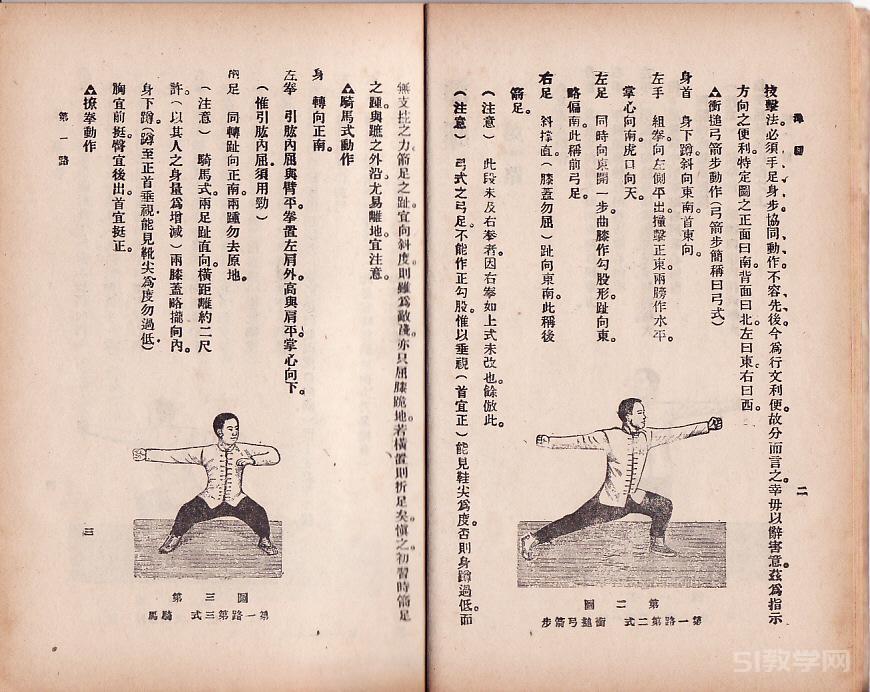 二
技擊法必須手足身步協同動作。不容先後。今爲行文利便。故分而言之。幸毋以辭害意。茲爲指示
方向之便利。特定圖之正面曰南。背面曰北。左曰東。右曰西。
▲衝搥弓箭步動作(弓箭步簡稱曰弓式)
身首 身下蹲。斜向東南。首東向。
左手 組拳向左側平出。撞擊正東。兩膀作水平。
掌心向南。虎口向天。
左足 同時向東開一步。曲膝作勾股形。趾向東。
略偏南。此稱前弓足。
右足 斜撐直。(膝蓋勿屈)趾向東南。此稱後
箭足。
(注意) 此段未及右拳者。因右拳如上式未改也。餘倣此。
(注意) 弓式之弓足。不能作正勾股。惟以垂視(首宜正)能見鞋尖爲度。否則身蹲過低。而
第二圖
第一路第二式 衝搥弓箭步
無支拄之力。箭足之趾。宜向斜度。則雖爲敵踐。亦只屈膝跪地。若橫置則折足矣。愼之。初習時箭足
之踵。與蹠之外沿。尤易離地。宜注意。
▲騎馬式動作
身 轉向正南。
左拳 引肱內屈與臂平。拳置左肩外。高與肩平。掌心向下。
(惟引肱內屈須用勁)
兩足 同轉趾向正南。兩踵勿去原地。
(注意) 騎馬式。兩足趾直向。橫距離約二尺
許。(以其人之身量爲增減)兩膝蓋略攏向內。
身下蹲。(蹲至正首垂視能見靴尖爲度勿過低)
胸宜前挺。臀宜後出。首宜挺正。
▲撩拳動作
第三圖
第一路第三式 騎馬
第一路
三
51教学网